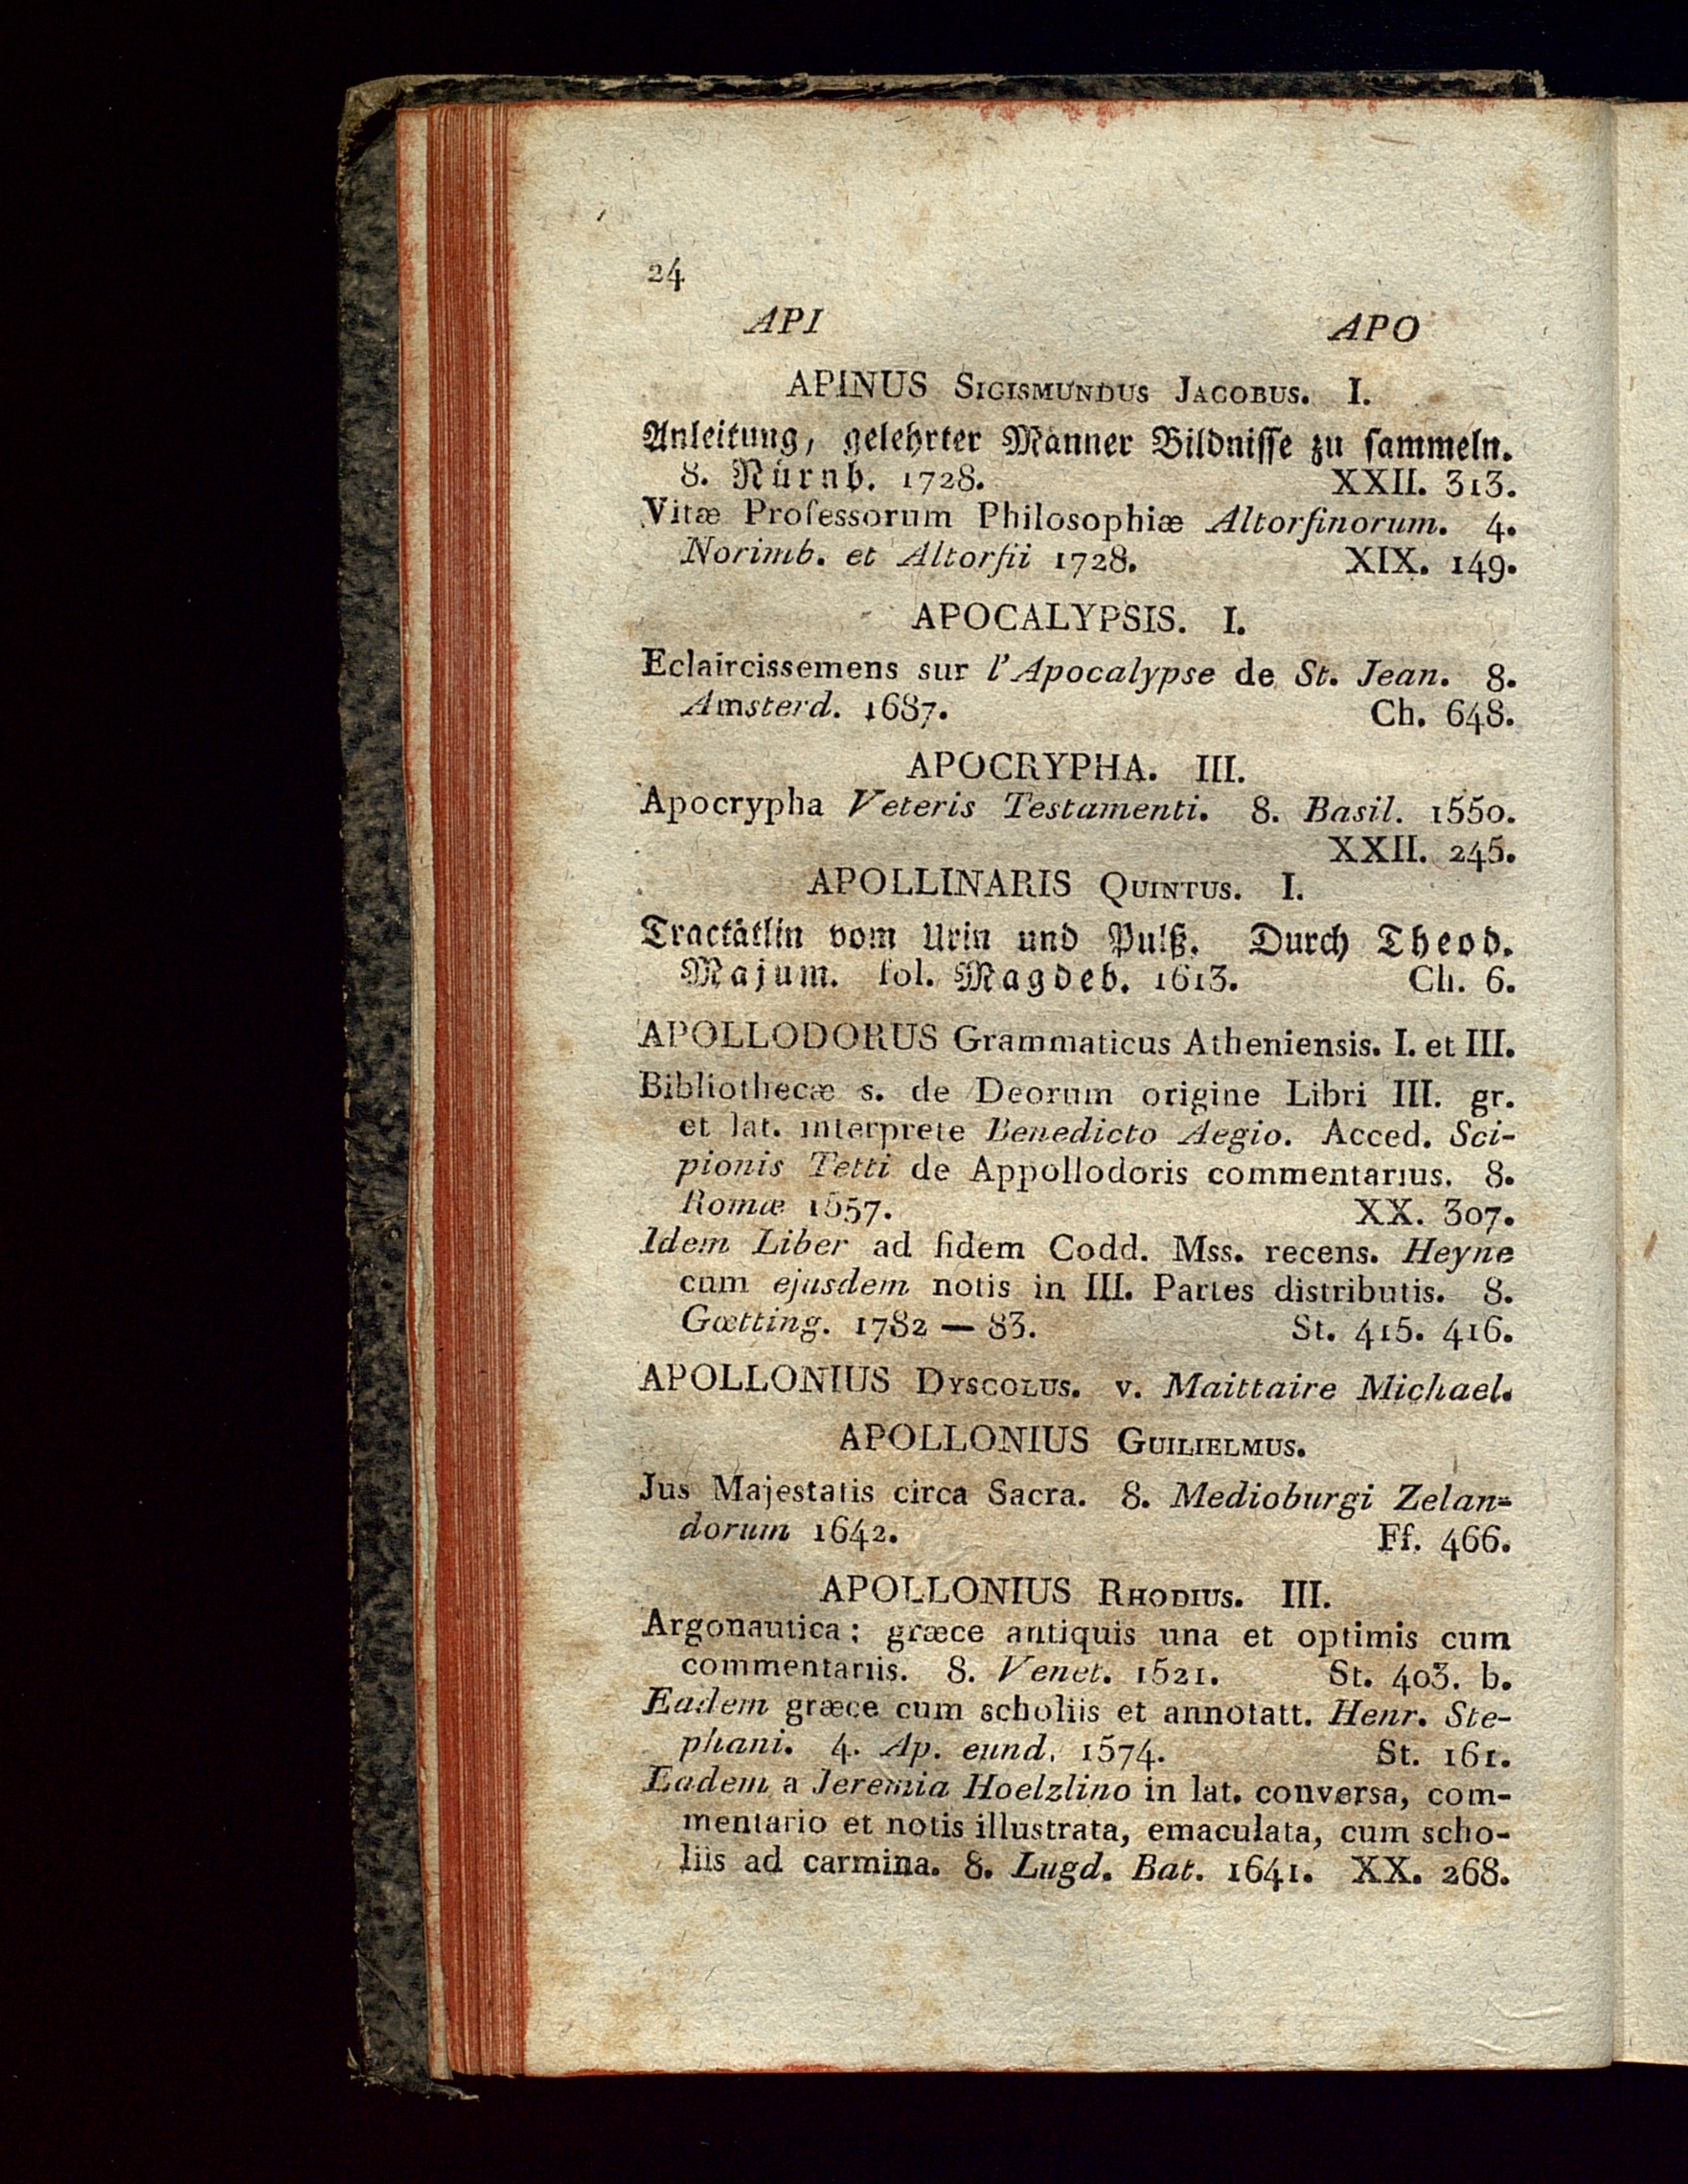 24
API APO
APINUS SIGISMUNDUS JACOBUS. I.
Anleitung, gelehrter Männer Bildnisse zu sammeln.
8. Nürnb. 1728. XXII. 313.
Vitæ Professorum Philosophiæ Altorfinorum. 4.
Norimb. et Altorfii 1728. XIX. 149.
APOCALYPSIS. I.
Eclaircissemens sur l'Apocalypse de St. Jean. 8.
Amsterd. 1687. Ch. 648.
APOCRYPHA. III.
Apocrypha Veteris Testamenti. 8. Basil. 1550.
XXII. 245.
APOLLINARIS QUINTUS. I.
Tractätlin vom Urin und Pulß. Durch Theod.
Majum. fol. Magdeb. 1613. Ch. 6.
APOLLODORUS Grammaticus Atheniensis. I. et III.
Bibliothecæ s. de Deorum origine Libri III. gr.
et lat. interprete Benedicto Aegio. Acced. Sci-
pionis Tetti de Appollodoris commentarius. 8.
Romæ 1557. XX. 307.
Idem Liber ad fidem Codd. Mss. recens. Heyne
cum ejusdem notis in III. Partes distributis. 8.
Gœtting. 1782 — 83. St. 415. 416.
APOLLONIUS DYSCOLUS. v. Maittaire Michael.
APOLLONIUS GUILIELMUS.
Jus Majestatis circa Sacra. 8. Medioburgi Zelan-
dorum 1642. Ff. 466.
APOLLONIUS RHODIUS. III.
Argonautica; græce antiquis una et optimis cum
commentariis. 8. Venet. 1521. St. 403. b.
Eadem græce cum scholiis et annotatt. Henr. Ste-
phani. 4. Ap. eund. 1574. St. 161.
Eadem a Jeremia Hoelzlino in lat. conversa, com-
mentario et notis illustrata, emaculata, cum scho-
liis ad carmina. 8. Lugd. Bat. 1641. XX. 268.